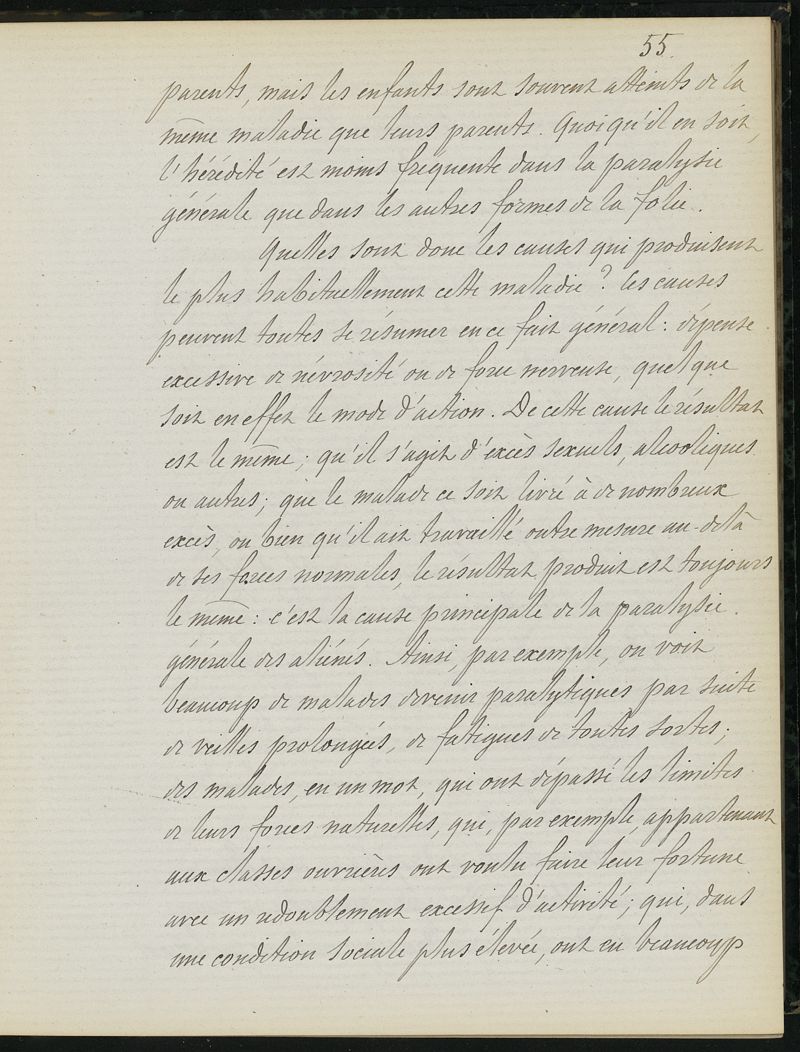 55.
parents, mais les enfants sont souvent atteints de la
même maladie que leurs parents. Quoiqu'il en soit,
l'hérédité est moins fréquente dans la paralysie
générale que dans les autres formes de la folie.
Quelles sont donc les causes qui produisent
le plus habituellement cette maladie ? Les causes
peuvent toutes se résumer en ce fait général : dépense
excessive de névrosité ou de force nerveuse, quelque
soit en effet le mode d'action. De cette cause le résultat
est le même ; qu'il s'agit d'excès sexuels, alcooliques
ou autres ; que le malade ce soit livré à de nombreux
excès, ou bien qu'il ait travaillé outre mesure au-delà
de ses forces normales, le résultat produit est toujours
le même : c'est la cause principale de la paralysie
générale des aliénés. Ainsi, par exemple, on voit
beaucoup de malades devenir paralytiques par suite
de veilles prolongées, de fatigues de toutes sortes ;
des malades, en un mot, qui ont dépassé les limites
de leurs forces naturelles, qui, par exemple, appartenant
aux classes ouvrières ont voulu faire leur fortune
avec un redoublement excessif d'activité ; qui, dans
une condition sociale plus élevée, ont eu beaucoup